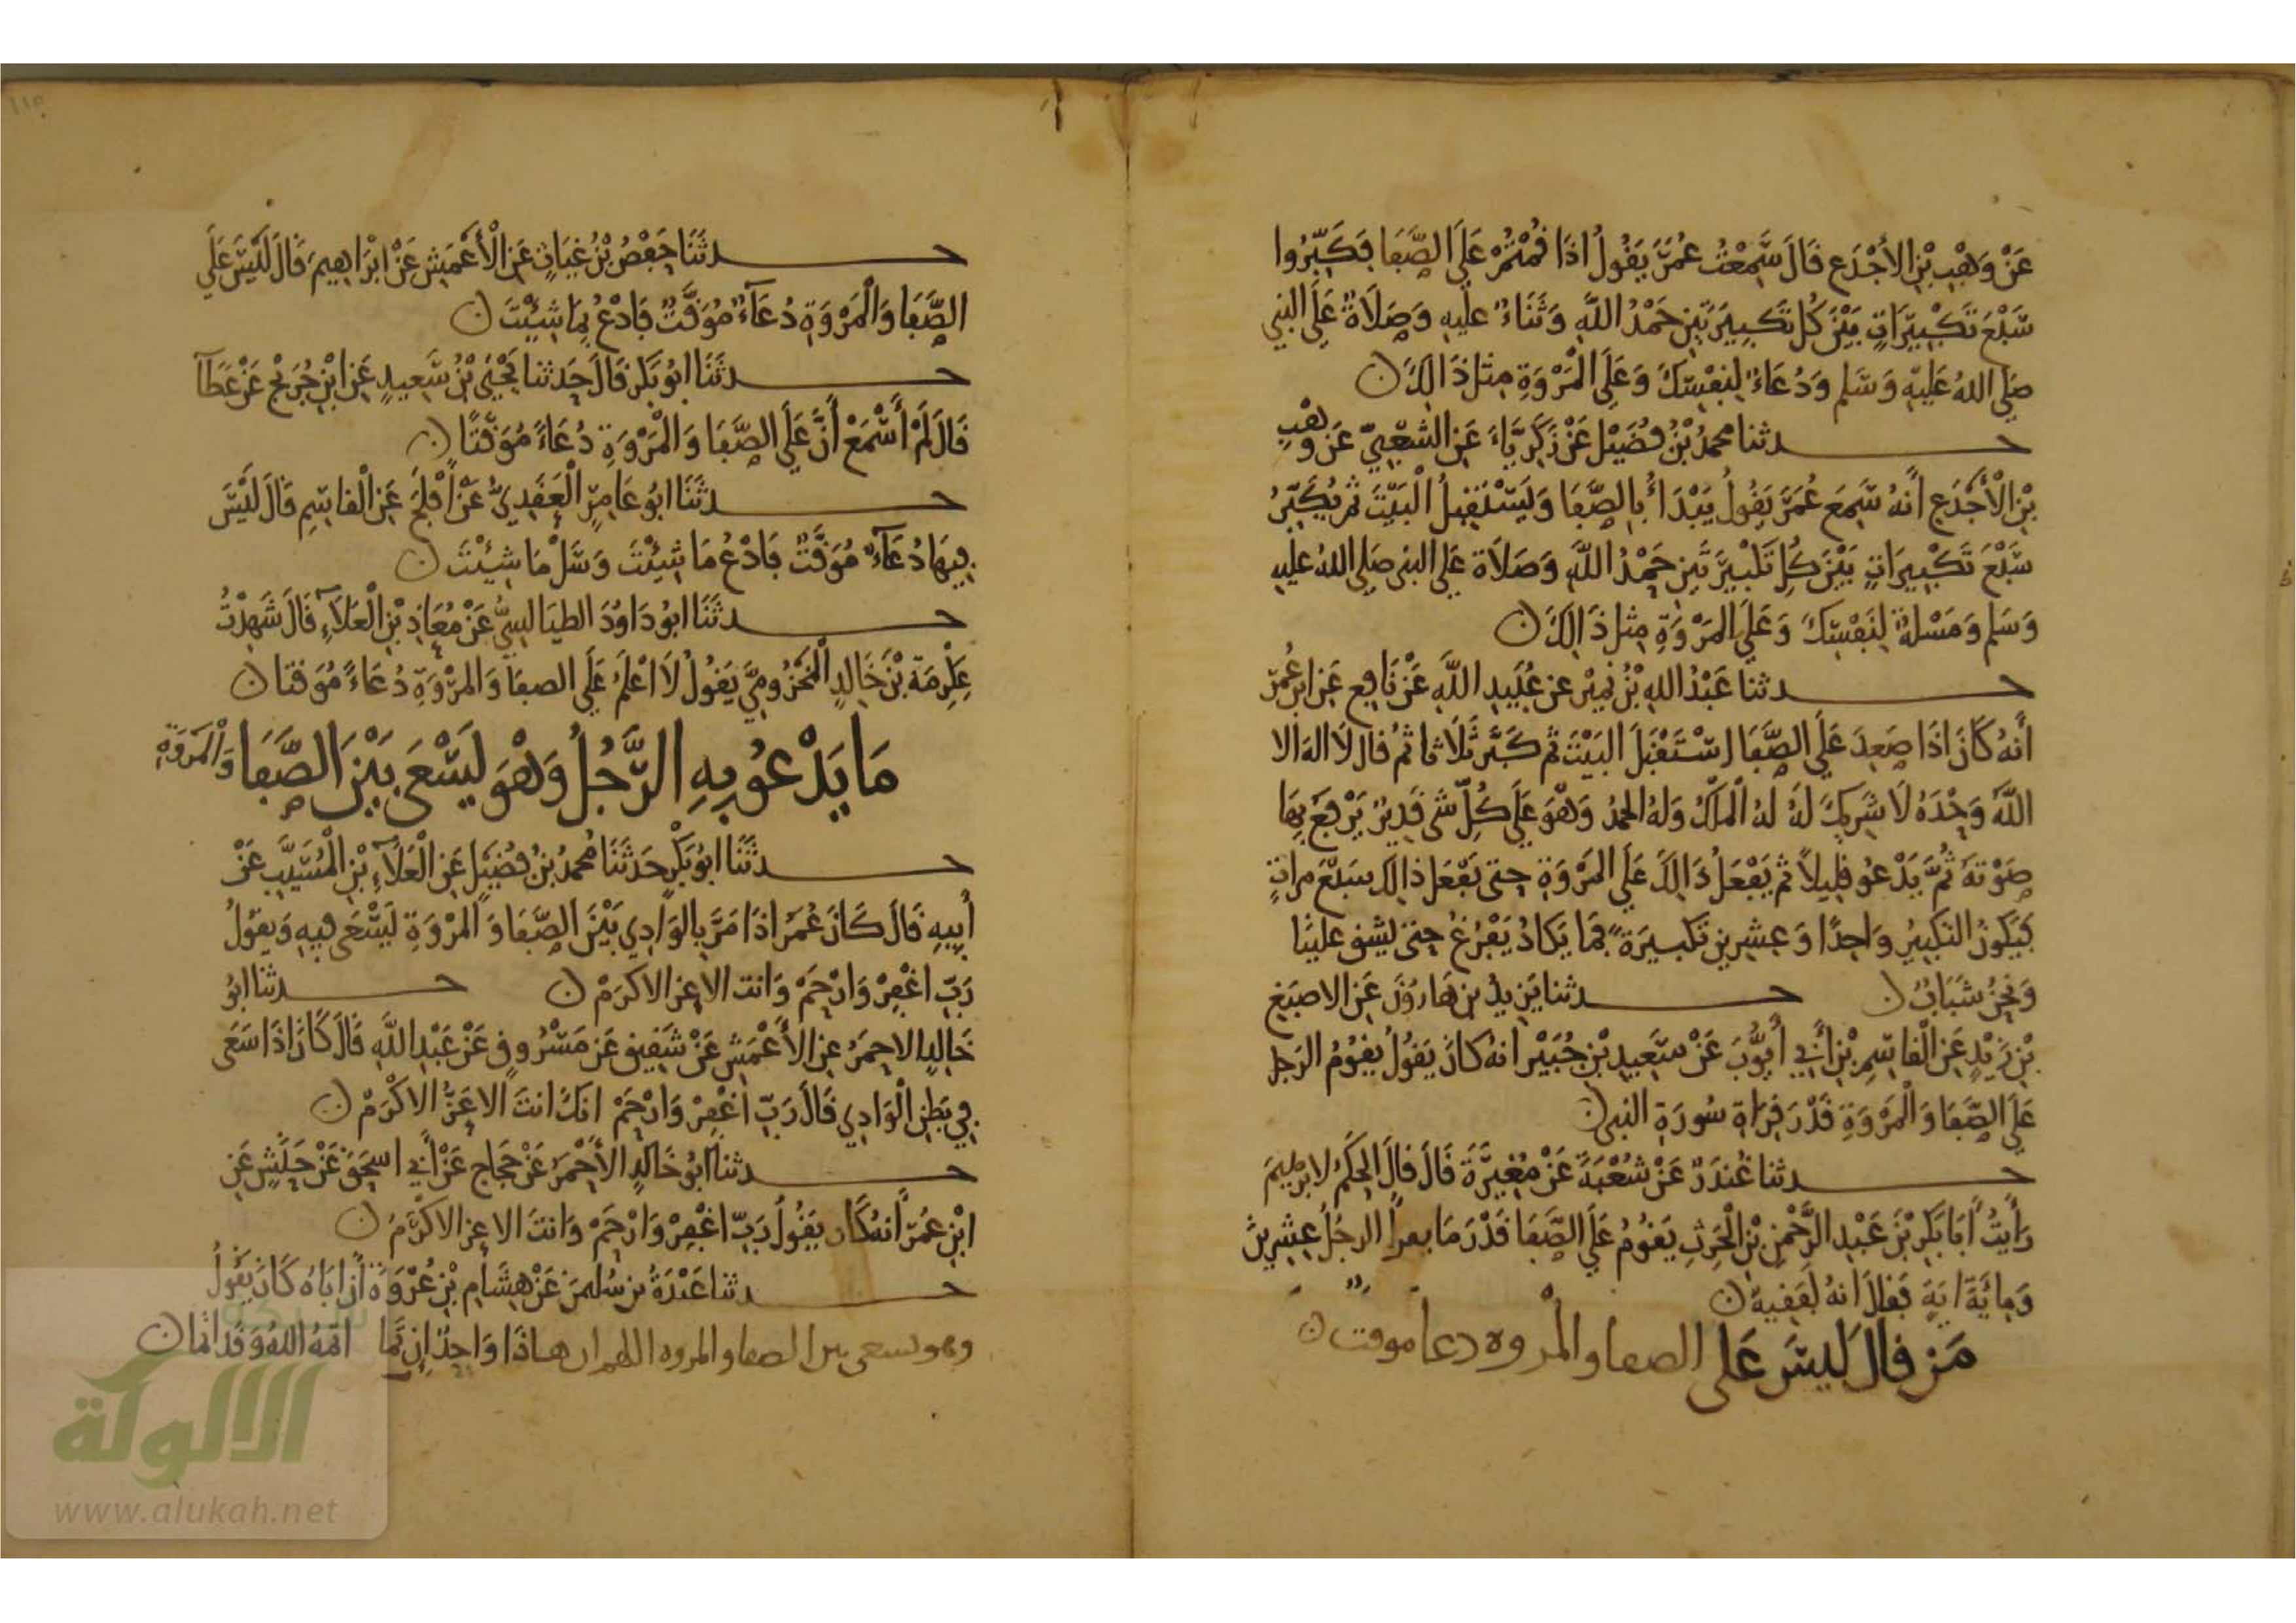 عَنْ وَهْبِ بْنِ الأَجْدَعِ قَالَ سَمِعْتُ عُمَرَ يَقُولُ اذَا قُمْتُمْ عَلَى الصَّفَا فَكَبِّرُوا
سَبْعَ تَكْبِيرَاتٍ بَيْنَ كُل تَكبِيرَتَيْنِ حَمْدُ اللَّهِ وَثَنَاءٌ عليهِ وَصَلَاةٌ عَلَى النبي
صَلى اللهُ عَليهِ وَسَلم وَدُعَاءٌ لِنَفْسِكَ وَعَلَى الْمَرْوَةِ مِثل ذَالِكَ ن
حدثنا محمدُ بْنُ فُضَيْل عَنْ زَكَرِيَّاءَ عَنِ الشَّعْبِيّ عَن وهْبِ
بْنِ الْأَجْدَعِ أَنهُ سَمِعَ عُمَرَ يَقُولُ يَبْدَأُ بِالصَّفَا وَيَسْتَقْبِلُ الْبَيْتَ ثم يُكَبِّرُ
سَبْعَ تَكْبِيرَاتٍ بَيْنَ كلِ تَكْبِيرَتَيْنِ حَمْدُ اللَّهِ وَصَلَاة عَلى النبى صَلى اللهُ عليهِ
وَسَلم وَمَسْلةٌ لِنَفْسِكَ وَعَلَى المَرْوَةِ مِثل ذَالِكَ ن
حدثنا عَبْدُ اللهِ بْنُ نُمَيْر عن عُبَيدِ اللَّهِ عَنْ نَافِع عَن ابن عُمَرَ
أَنهُ كَانَ اذَا صَعِدَ عَلَى الصَّفَا اسْتَقْبَلَ البَيْتَ ثم كَبَّرَ ثَلَاثا ثمُ قال لَا اله الا
اللَّهَ وَحْدَهُ لَا شَرِيكَ لَهُ لهُ الْمُلْكُ وَلهُ الحمدُ وَهْوَ عَلَى كُلِّ شى قَدِيرٌ يَرْفعَ بِهَا
صَوْتَهُ ثُمَّ يَدْعُو قليلاً ثم يَفْعَلُ ذَالِكَ عَلَى المَرْوَةِ حتى يَفْعَل ذَالك سَبْعَ مراتٍ
فيَكونُ التكبيرُ وَاحِدًا وَعِشرِين تكبيرَةً فمَا يَكادُ يَفْرُغُ حتى يشق علينَا
وَنحنُ شَبَابٌ ن حدثنا يَزيدُ بن هَارُوْنَ عَنِ الاصبَغِ
بْنِ زَيْدٍ عَنِ الْقاسِمِ بْنِ أَبي أَيُّوبَ عَنْ سَعِيدِ بْنِ جُبَيْر انهُ كانَ يَقُولُ يقوُمُ الرَجل
عَلَى الصَّفَا وَالْمَرْوَةِ قَدْرَ قِرَاة سُورَةِ النبي ن
حدثنا غُندَرٌ عَنْ شُعْبَةَ عَنْ مُغِيرَةَ قَالَ قالَ الحكَمُ لابرٰهِيمَ
رَأَيتُ أَبَا بَكرِ بْنَ عَبْدِ الرَّحْمٰنِ بْنِ الْحَرِثِ يَقُومُ عَلَى الصَّفَا قَدْرَ مَا يقرأُ الرجُلُ عِشرِينَ
وَمِائَةَ ايَةٍ فقالَ انهُ لفَقِيهٌ ن
مَن قالَ ليسَ عَلى الصفا والمْروه دعا موقت ن
حدثَنَا حَفْصُ بْنُ غِيَاثٍ عَنِ الْأَعْمَشِ عَنْ ابْرَاهِيمَ قَالَ لَيْسَ عَلَى
الصَّفَا وَالْمَرْوَةِ دُعَآءٌ مُوَقَّتٌ فَادْعُ بِمَا شِيْتَ ن
حدثَنَا ابُو بَكرٍ قالَ حَدثنا يَحْيَى بْنُ سَعِيدٍ عَنِ ابْنِ جُرَيْجٍ عَنْ عَطَآ
قَالَ لَمْ أَسْمَعْ أَنَّ عَلَى الصَّفَا وَالْمَرْوَةِ دُعَاءً مُوَقَّتًا ن
حدثَنَا ابُو عَامِرٍ الْعَقَدِيُّ عَنْ أَفْلَحَ عَنِ الْقاسِمِ قَالَ لَيْسَ
فِيهَا دُعَآءٌ مُوَقَّتٌ فَادْعُ مَا شِيْتَ وَسَلْ مَا شِيْتَ ن
حدثَنَا ابُو دَاوُدَ الطيَالسِيُّ عَنْ مُعَاذِ بْنِ الْعَلَآءِ قَالَ شَهِدْتُ
عِكْرِمَةَ بْنَ خَالِدٍ الْمَخْزُومِيَّ يَقُولُ لَا اعْلَمُ عَلَى الصفا وَالمَرْوَةِ دُعَاءً مُوَقتا ن
مَا يَدْعُو بِهِ الرَّجُلُ وَهْوَ يَسْعَى بَيْنَ الصَّفَا وَالْمَرْوَةِ
حدثَنَا ابُو بَكْرٍ حَدثَنَا مُحمدُ بنُ فُضَيْل عَنِ الْعَلَآءِ بْنِ الْمُسَيَّبِ عَنْ
أَبِيهِ قَالَ كَانَ عُمَرُ اذَا مَرَّ بِالوَادِي بَيْنَ الصَّفَا وَالْمَرْوَةِ يَسْعَى فيهِ وَيقولُ
رَبِّ اغْفِرْ وَارْحَمْ وَانت الاعز الاكرَمْ ن حدثنا ابُو
خَالِدٍ الاحمَرُ عنِ الأَعْمَشِ عَنْ شَقِيقٍ عَن مَسْرُوقٍ عَنْ عَبْدِ اللَّهِ قَالَ كَانَ اذَا سَعَى
فِي بَطنِ الْوَادِي قَالَ رَبِّ اغْفِرْ وَارْحَمْ انكَ انتَ الاعَزُّ الاكْرَمْ ن
حدثنا ابُو خَالِدٍ الأَحْمَرُ عَنْ حَجَّاجٍ عَنْ أَبي اسحَقَ عَنْ حَبَشٍ عَنِ
ابْنِ عُمَرَ أَنهُ كَان يَقُولُ رَبِّ اغْفِرْ وَارْحَمْ وَانتَ الاعز الاكْرَمُ ن
حدثنا عَبْدَةُ بن سُليمٰنَ عَنْ هِشَامِ بْنِ عُرْوَةَ أَن ابَاهُ كَانَ يَقُولُ
وهو يسعى بين الصفا والمروه اللهم ان هاذَا وَاحِدٌ إِن تَمَّا اتمهُ اللهُ وَقد اتما ن
الألوكة
www.alukah.net